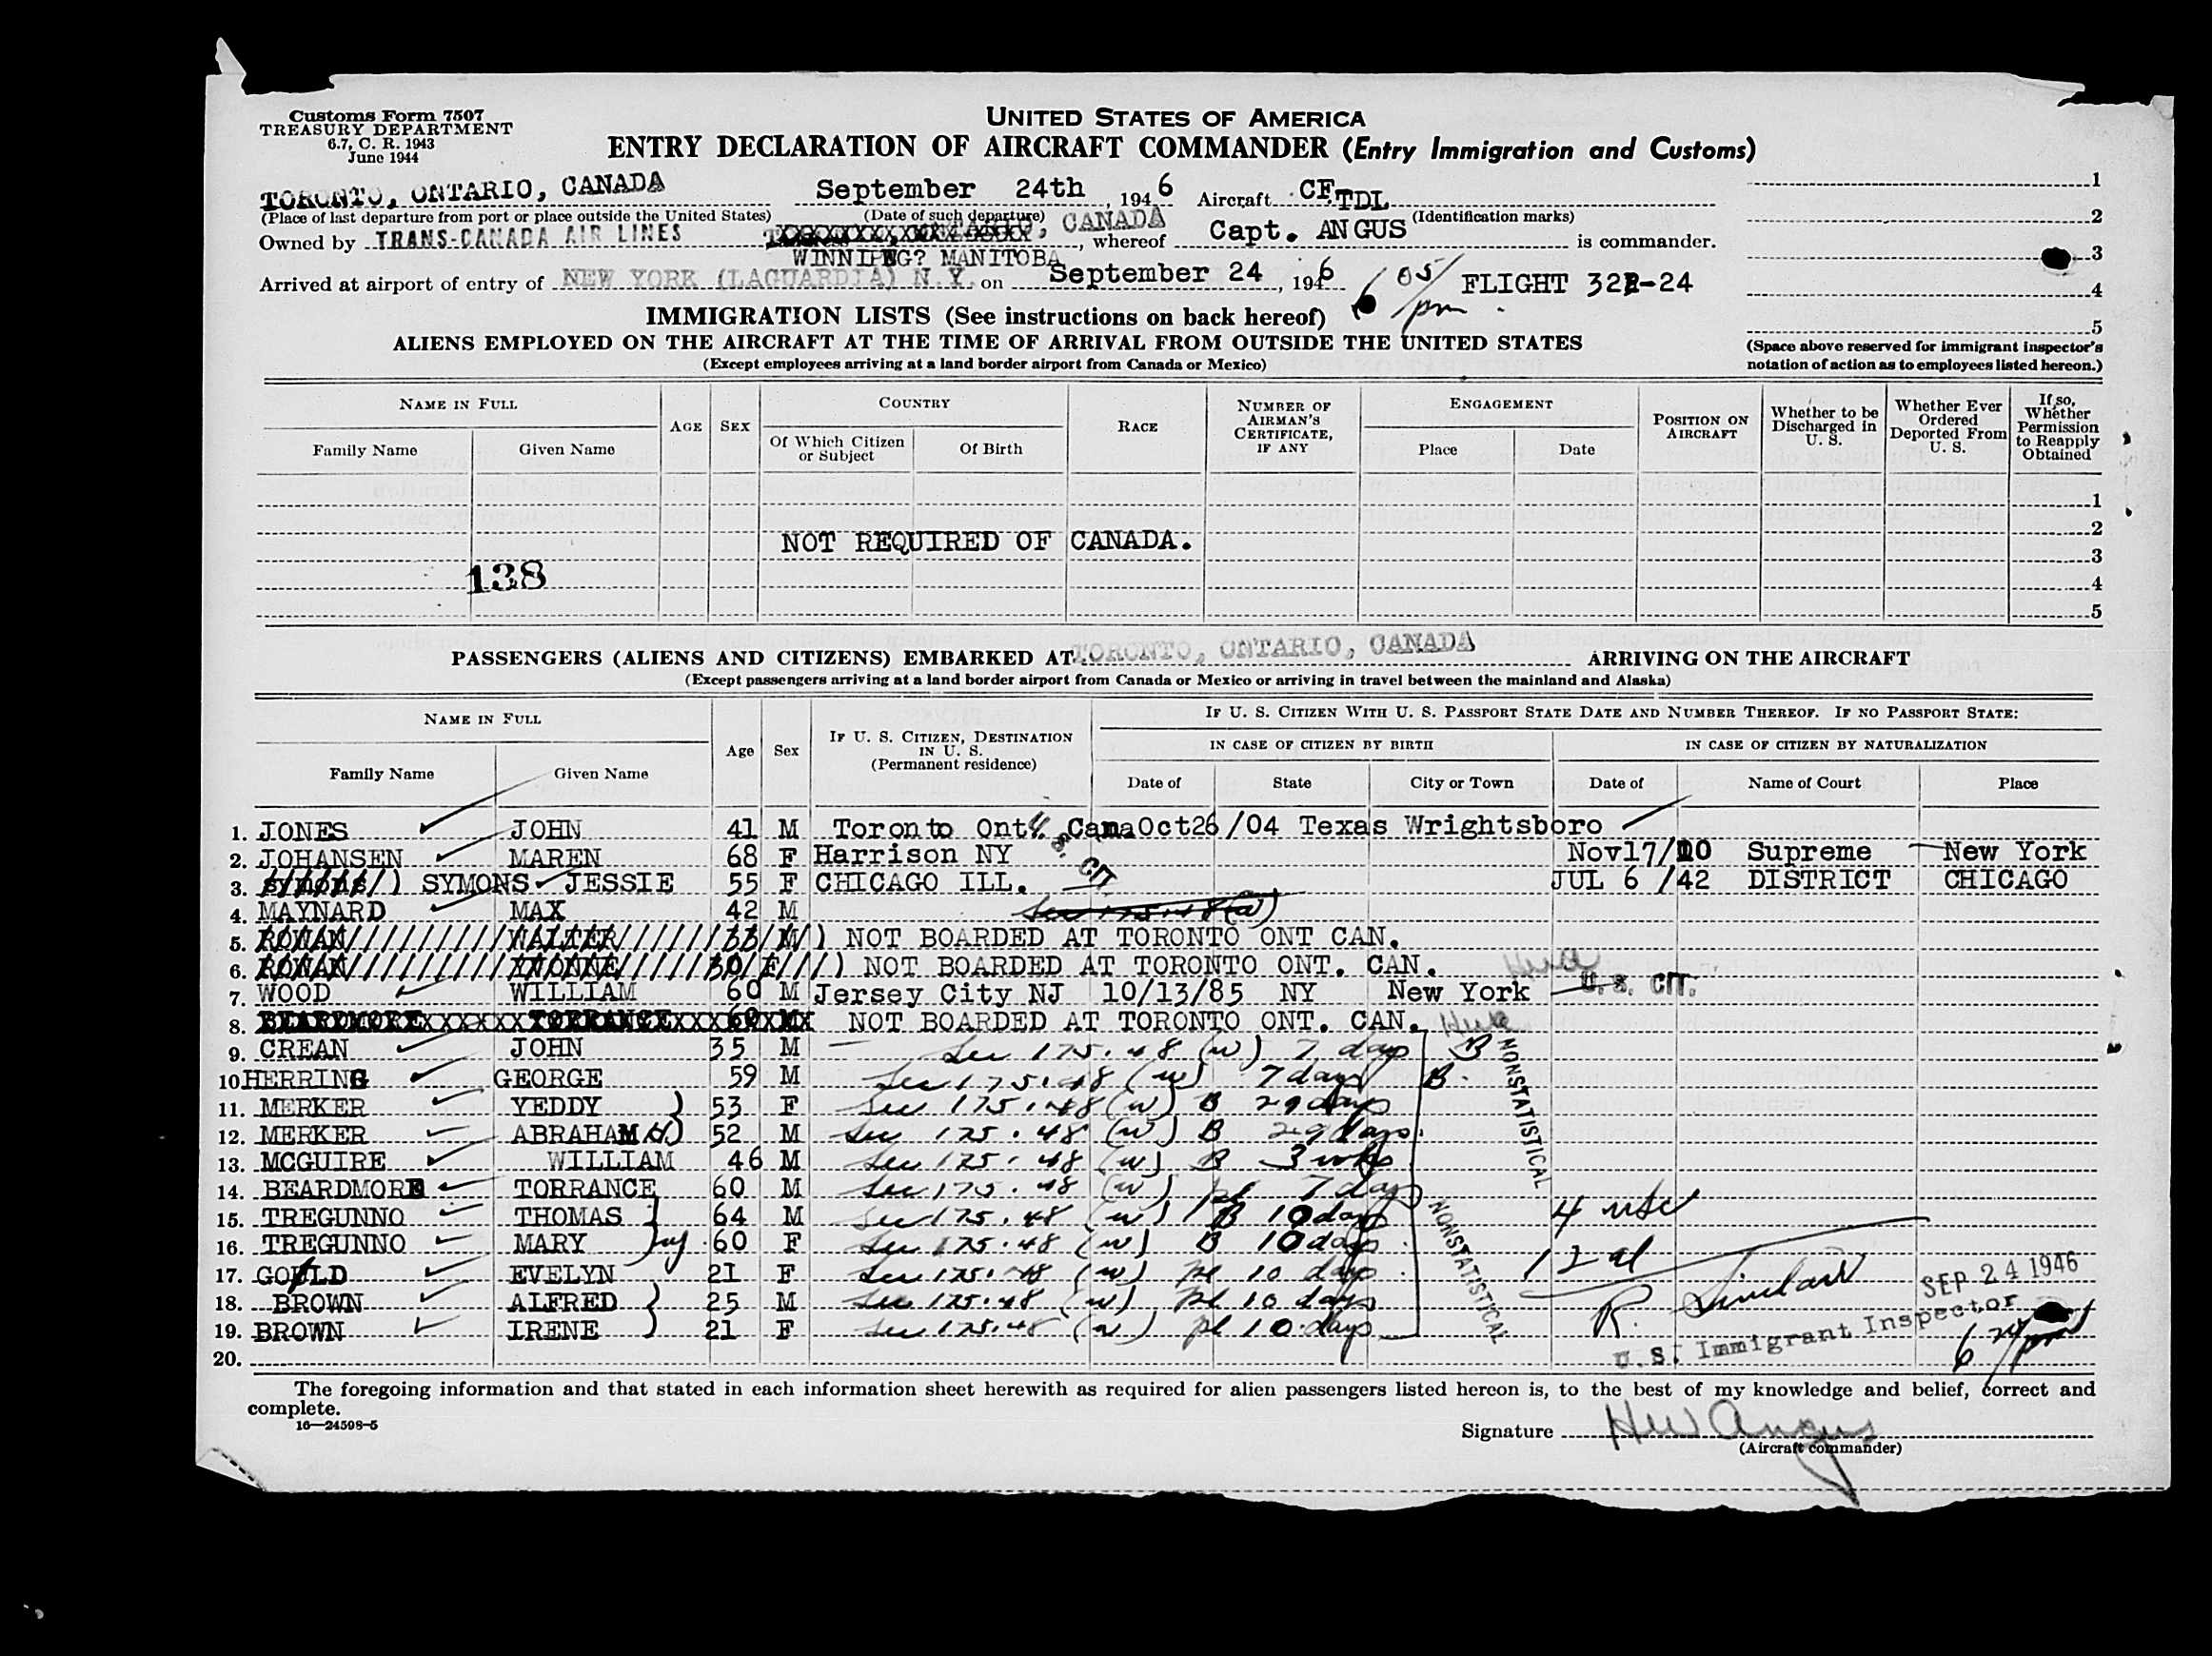 Customs Form 7507
TREASURY DEPARTMENT
6.7, C. R. 1943
June 1944
UNITED STATES OF AMERICA
ENTRY DECLARATION OF AIRCRAFT COMMANDER (Entry Immigration and Customs)
TORONTO, ONTARIO, CANADA September 24th, 1946 Aircraft CF TDL 1
(Place of last departure from port or place outside the United States) (Date of such departure) (Identification marks) 2
Owned by TRANS-CANADA AIR LINES, CANADA, whereof Capt. ANGUS is commander.
WINNIPEG? MANITOBA 3
Arrived at airport of entry of NEW YORK (LAGUARDIA) N.Y. on September 24, 1946 6 05/pm FLIGHT 322-24 4
IMMIGRATION LISTS (See instructions on back hereof) 5
ALIENS EMPLOYED ON THE AIRCRAFT AT THE TIME OF ARRIVAL FROM OUTSIDE THE UNITED STATES
(Except employees arriving at a land border airport from Canada or Mexico)
(Space above reserved for immigrant inspector's notation of action as to employees listed hereon.)
NAME IN FULL AGE SEX COUNTRY RACE NUMBER OF AIRMAN'S CERTIFICATE, IF ANY ENGAGEMENT POSITION ON AIRCRAFT Whether to be Discharged in U. S. Whether Ever Ordered Deported From U. S. If so, Whether Permission to Reapply Obtained
Family Name Given Name Of Which Citizen or Subject Of Birth Place Date
1
2
NOT REQUIRED OF CANADA.
3
138 4
5
PASSENGERS (ALIENS AND CITIZENS) EMBARKED AT TORONTO, ONTARIO, CANADA ARRIVING ON THE AIRCRAFT
(Except passengers arriving at a land border airport from Canada or Mexico or arriving in travel between the mainland and Alaska)
NAME IN FULL Age Sex IF U. S. CITIZEN, DESTINATION IN U. S. (Permanent residence) IF U. S. CITIZEN WITH U. S. PASSPORT STATE DATE AND NUMBER THEREOF. IF NO PASSPORT STATE:
IN CASE OF CITIZEN BY BIRTH IN CASE OF CITIZEN BY NATURALIZATION
Family Name Given Name Date of State City or Town Date of Name of Court Place
1. JONES JOHN 41 M Toronto Ont. Cana Oct26/04 Texas Wrightsboro
U. S. CIT.
2. JOHANSEN MAREN 68 F Harrison NY Nov17/20 Supreme New York
3. symons/) SYMONS JESSIE 55 F CHICAGO ILL. JUL 6 /42 DISTRICT CHICAGO
4. MAYNARD MAX 42 M Sec 175.48(w)
5. ROWAN WALTER 33 M ) NOT BOARDED AT TORONTO ONT CAN.
6. ROWAN YVONNE 30 F ) NOT BOARDED AT TORONTO ONT. CAN. Hwa
7. WOOD WILLIAM 60 M Jersey City NJ 10/13/85 NY New York U. S. CIT.
8. BEARDMORE TORRANCE 60 M NOT BOARDED AT TORONTO ONT. CAN. Hwa
9. CREAN JOHN 35 M Sec 175.48 (w) 7 days B
10 HERRING GEORGE 59 M Sec 175.48 (w) 7 days B.
11. MERKER YEDDY 53 F Sec 175.48 (w) B 29 days
12. MERKER ABRAHAM 52 M Sec 175.48 (w) B 29 days
13. MCGUIRE WILLIAM 46 M Sec 175.48 (w) B 3 wks
14. BEARDMORE TORRANCE 60 M Sec 175.48 (w) pl 7 days
15. TREGUNNO THOMAS 64 M Sec 175.48 (w) B 10 days
16. TREGUNNO MARY 60 F Sec 175.48 (w) B 10 days
17. GOULD EVELYN 21 F Sec 175.48 (w) pl 10 days
18. BROWN ALFRED 25 M Sec 175.48 (w) pl 10 days
19. BROWN IRENE 21 F Sec 175.48 (w) pl 10 days
20.
NONSTATISTICAL
NONSTATISTICAL
4 usc
12 al
R. Sinclair
SEP 24 1946
U. S. Immigrant Inspector
The foregoing information and that stated in each information sheet herewith as required for alien passengers listed hereon is, to the best of my knowledge and belief, correct and
complete.
16—24598-5
Signature HW Angus
(Aircraft commander)